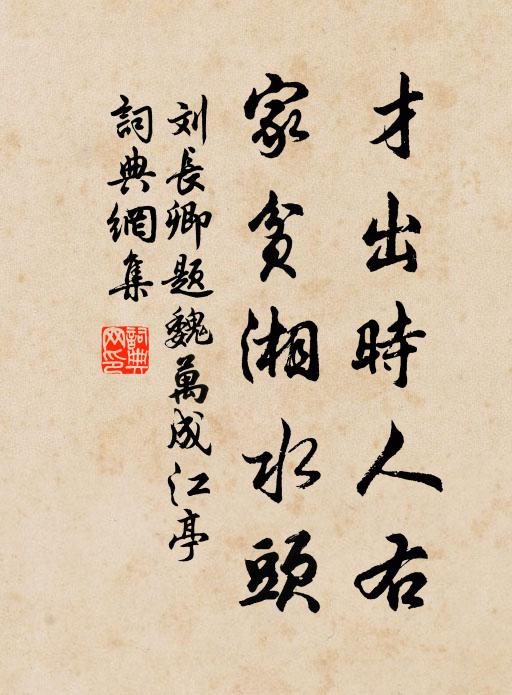 才出時人右
家貧湘水頭
刘長卿題魏萬成江亭
詞典網集
詞典网印